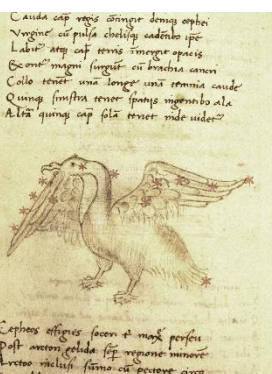 Cauda cap regis contingit denique cephei
Virgine cū pulsa chelisque cadētibo ipe
Labit atque cap terris īmergit opacis
Exorit magni surgūt cū brachia cancri
Collo tenet unā longe una temnia caude
Quinque sinistra tenet spatiis ingentibo ala
Altā quinque cap solā tenet inde videt
Cepheos effigies soceri magi persei
Post arcton gelida semp regione minore
Arctoo inclusi sūmo cū pectore circo